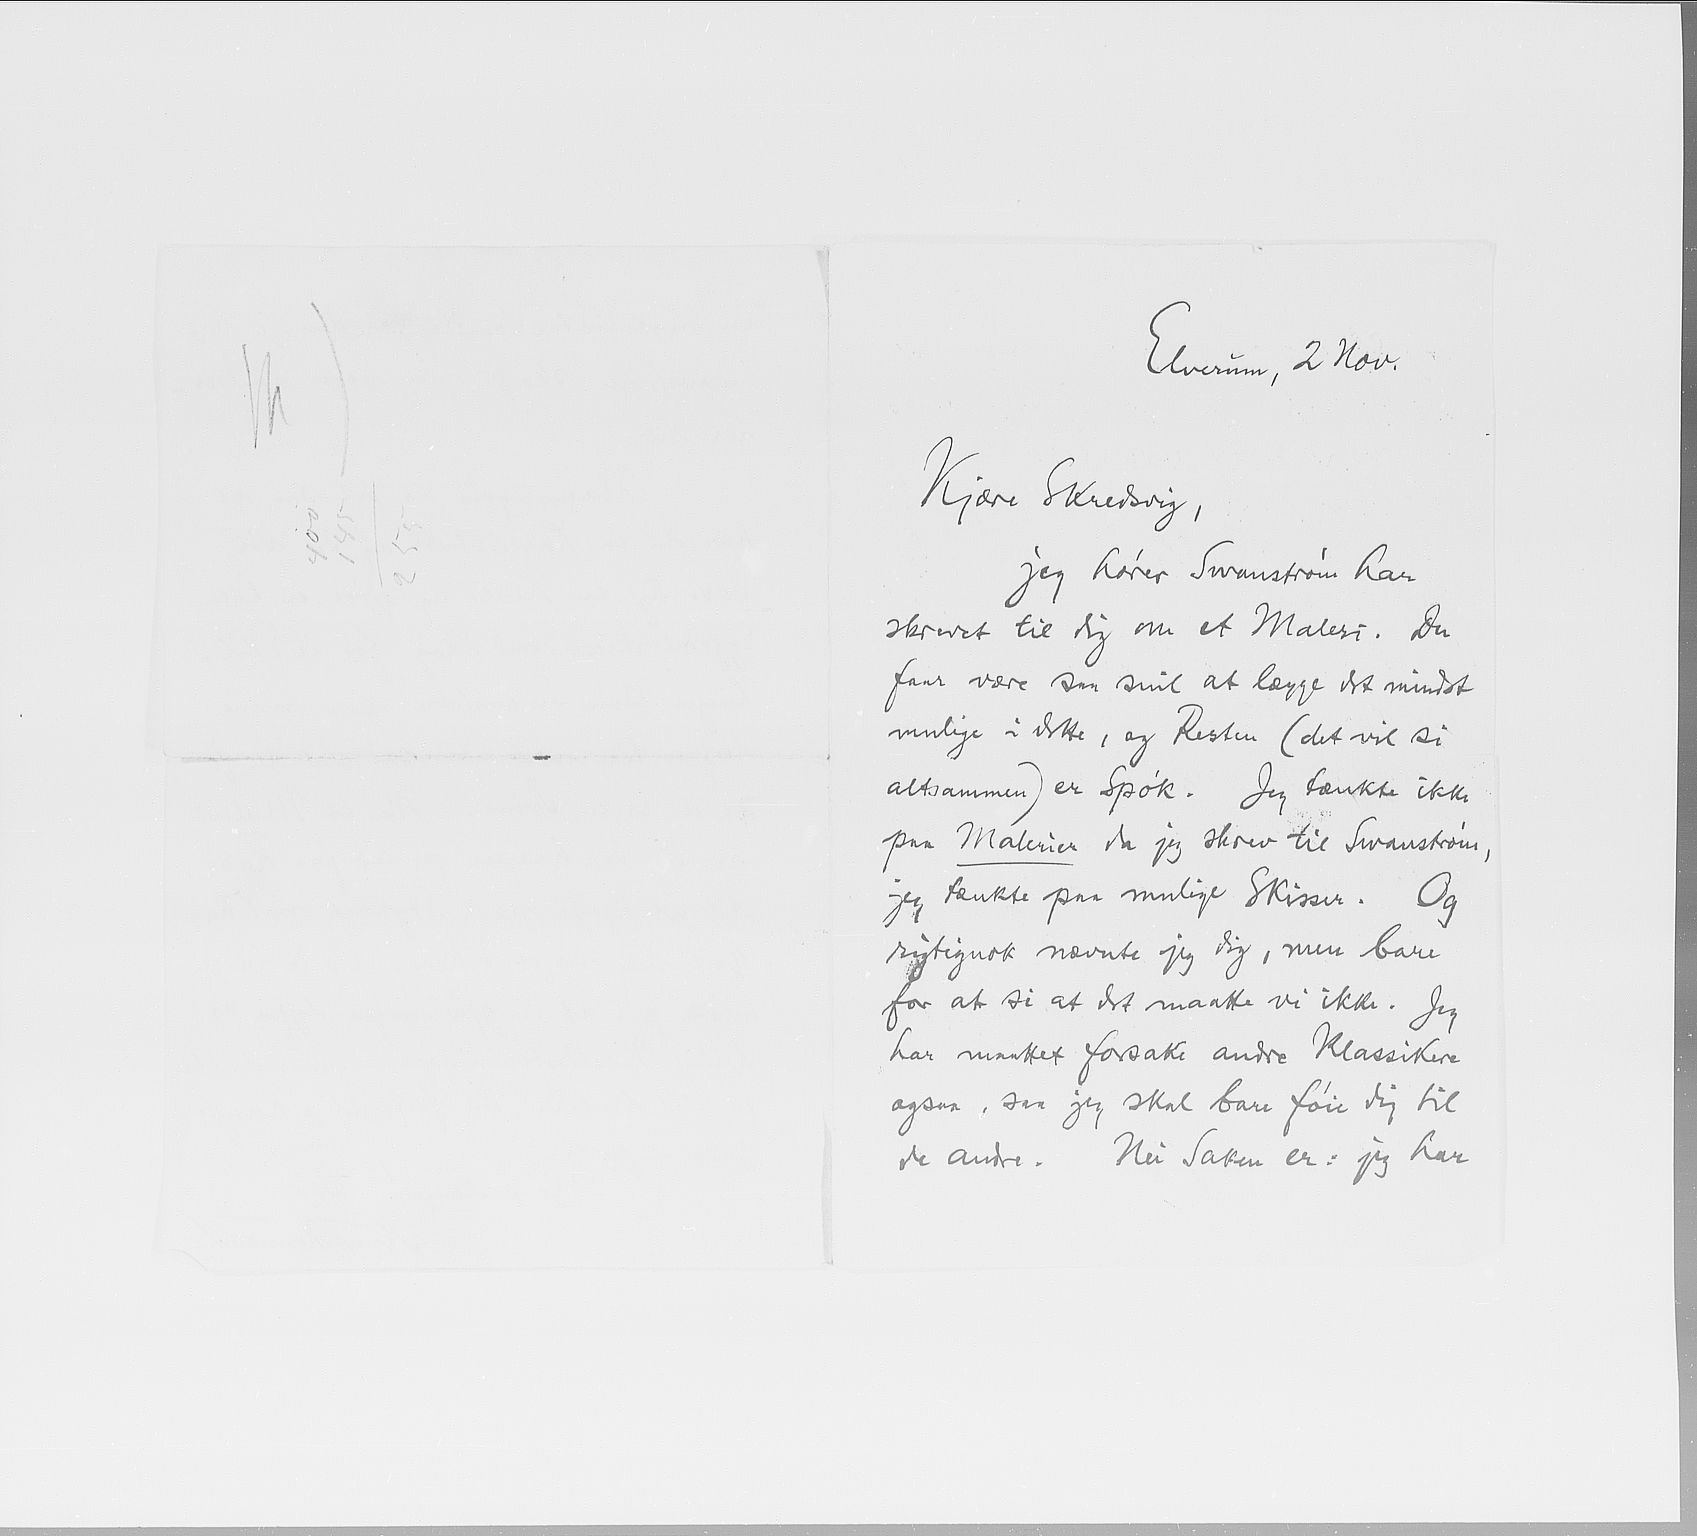 Elverum, 2 Nov.
Kjære Skredsvig,
jeg hører Swanstrøm har
skrevet til dig om et Maleri. Du
faar være saa snil at lægge det mindst
mulige i dette, og Resten (det vil si
altsammen) er Spøk. Jeg tænkte ikke
paa Malerier da jeg skrev til Swanstrøm,
jeg tænkte paa mulige Skisser. Og
rigtignok nævnte jeg dig, men bare
for at si at det maatte vi ikke. Jeg
har maattet forsake andre Klassikere
ogsaa, saa jeg skal bare føie dig til
de andre. Nei Saken er: jeg har